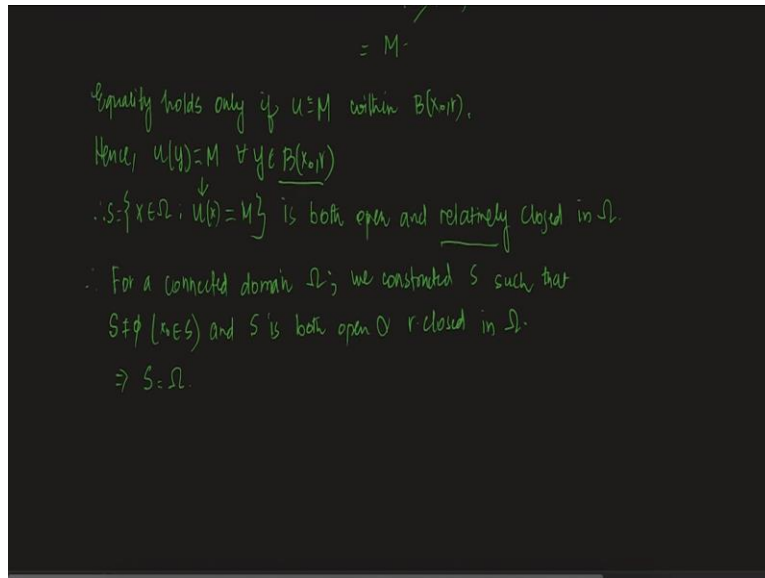 = M.
Equality holds only if u≡M within B(x₀,r).
Hence, u(y)=M ∀ y∈ B(x₀,r)
∴ S={x∈Ω : u(x) = M} is both open and relatively closed in Ω.
∴ For a connected domain Ω; we constructed S such that
S≠ϕ (x₀∈S) and S is both open & r.closed in Ω.
⇒ S=Ω.